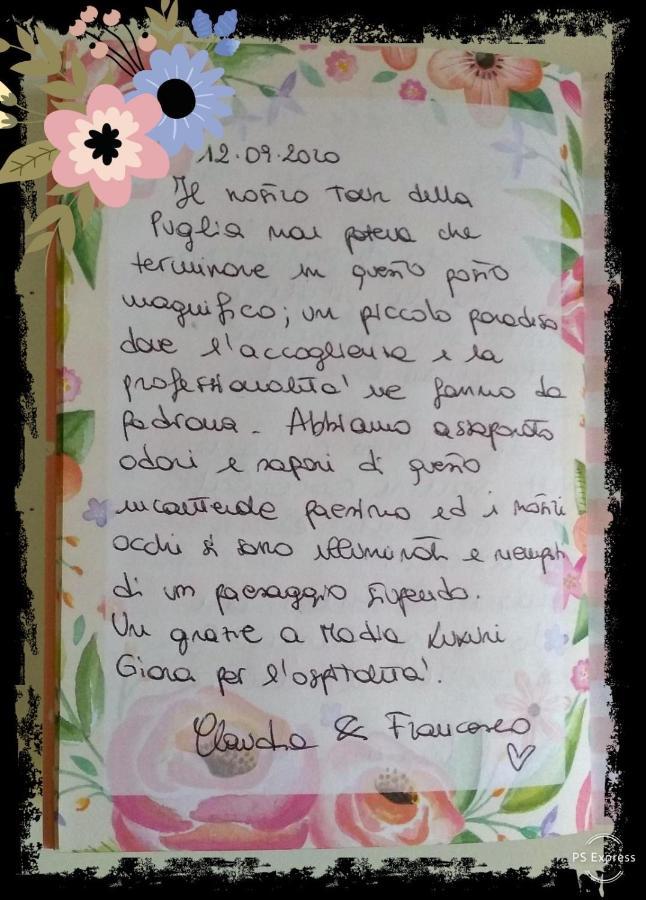 12.09.2020
Il nostro Tour della
Puglia non poteva che
terminare in questo posto
magnifico; un piccolo paradiso
dove l'accoglienza e la
professionalita' ne fanno da
padrona. Abbiamo assaporato
odori e sapori di questo
incantevole paesino ed i nostri
occhi si sono illuminati e riempiti
di un paesaggio stupendo.
Un grazie a
Giona per l'ospitalita'.
Claudia & Francesco
PS Express